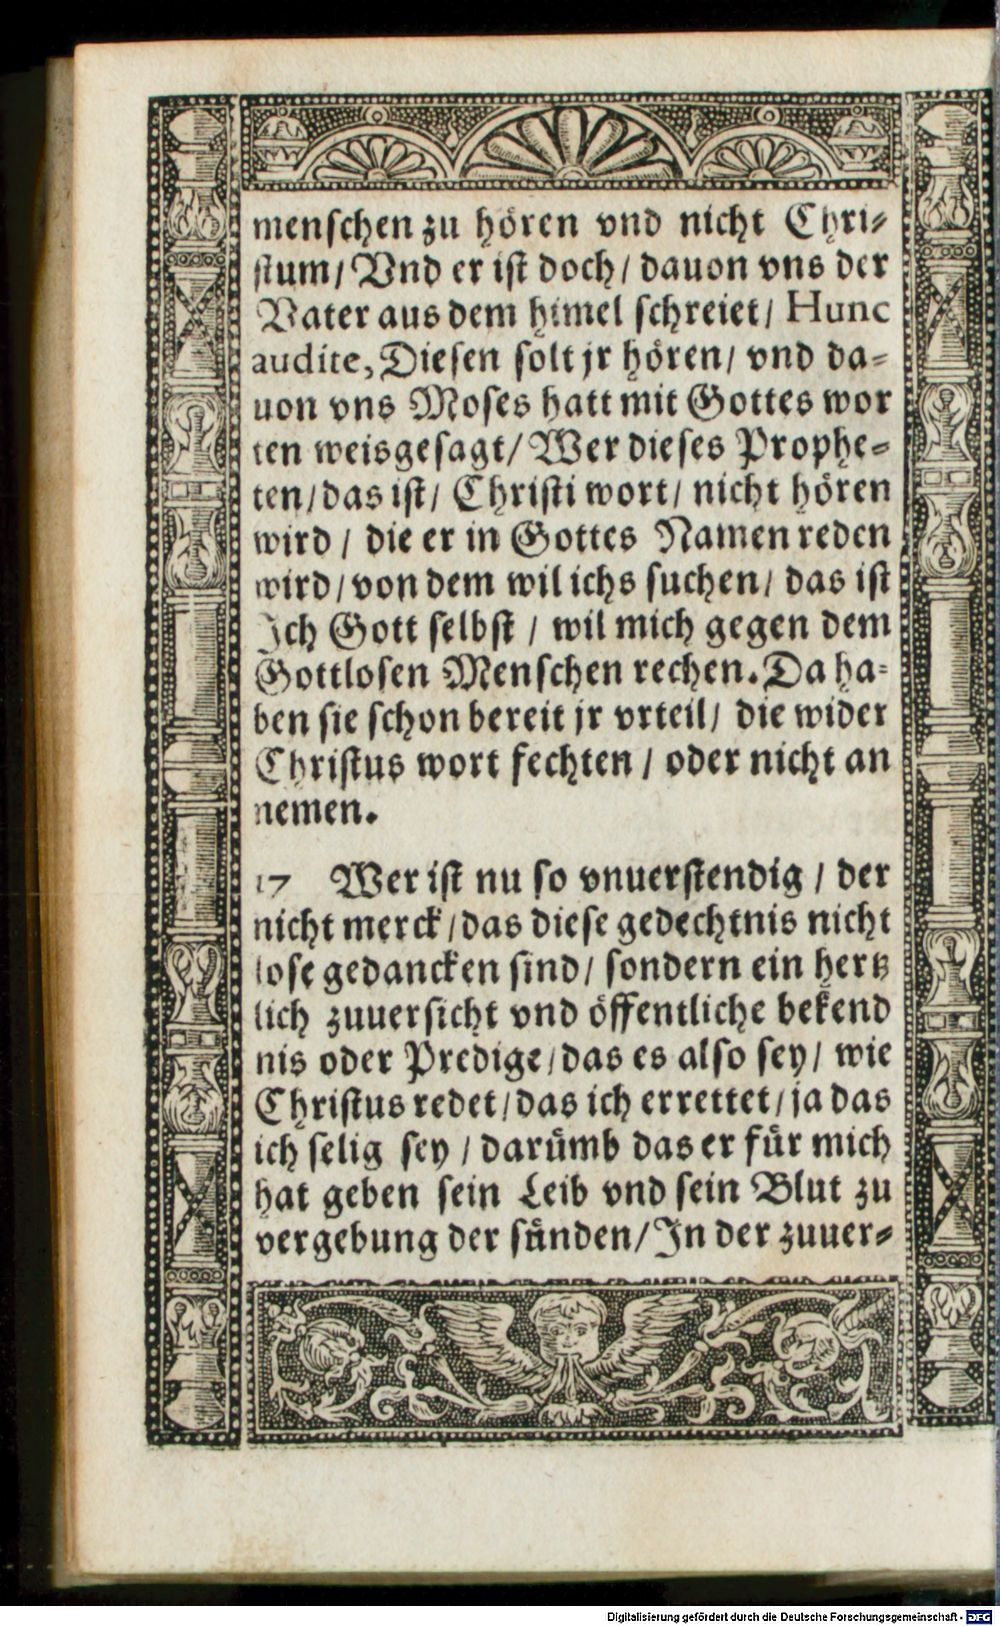 menschen zu hören vnd nicht Chri⸗
stum/ Vnd er ist doch/ dauon vns der
Vater aus dem himel schreiet/ Hunc
audite, Diesen solt jr hören/ vnd da⸗
uon vns Moses hatt mit Gottes wor
ten weisgesagt/ Wer dieses Prophe⸗
ten/ das ist/ Christi wort/ nicht hören
wird / die er in Gottes Namen reden
wird/ von dem wil ichs suchen/ das ist
Ich Gott selbst / wil mich gegen dem
Gottlosen Menschen rechen. Da ha⸗
ben sie schon bereit jr vrteil/ die wider
Christus wort fechten / oder nicht an
nemen.
17 Wer ist nu so vnuerstendig / der
nicht merck/ das diese gedechtnis nicht
lose gedancken sind/ sondern ein hertz
lich zuuersicht vnd öffentliche bekend
nis oder Predige/ das es also sey/ wie
Christus redet/ das ich errettet/ ja das
ich selig sey / darümb das er für mich
hat geben sein Leib vnd sein Blut zu
vergebung der sünden/ In der zuuer⸗
Digitalisierung gefördert durch die Deutsche Forschungsgemeinschaft - DFG